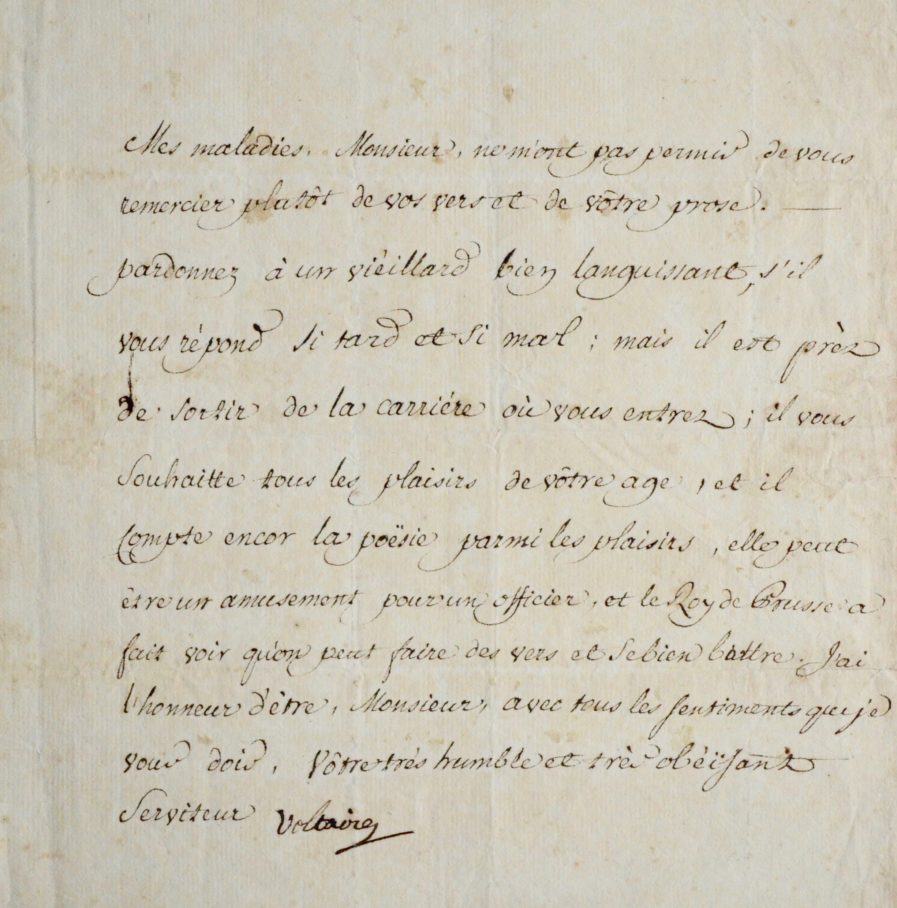 Mes maladies, Monsieur, ne m'ont pas permis de vous
remercier plutôt de vos vers et de vôtre prose. —
pardonnez à un viéillard bien languissant, s'il
vous répond si tard et si mal ; mais il est prèz
de sortir de la carriére où vous entrez ; il vous
souhaitte tous les plaisirs de vôtre age, et il
compte encor la poësie parmi les plaisirs, elle peut
être un amusement pour un officier, et le Roy de Prusse a
fait voir qu'on peut faire des vers et se bien battre. J'ai
l'honneur d'être, Monsieur, avec tous les sentiments que je
vous dois, Vôtre trés humble et très obéïssant
Serviteur Voltaire